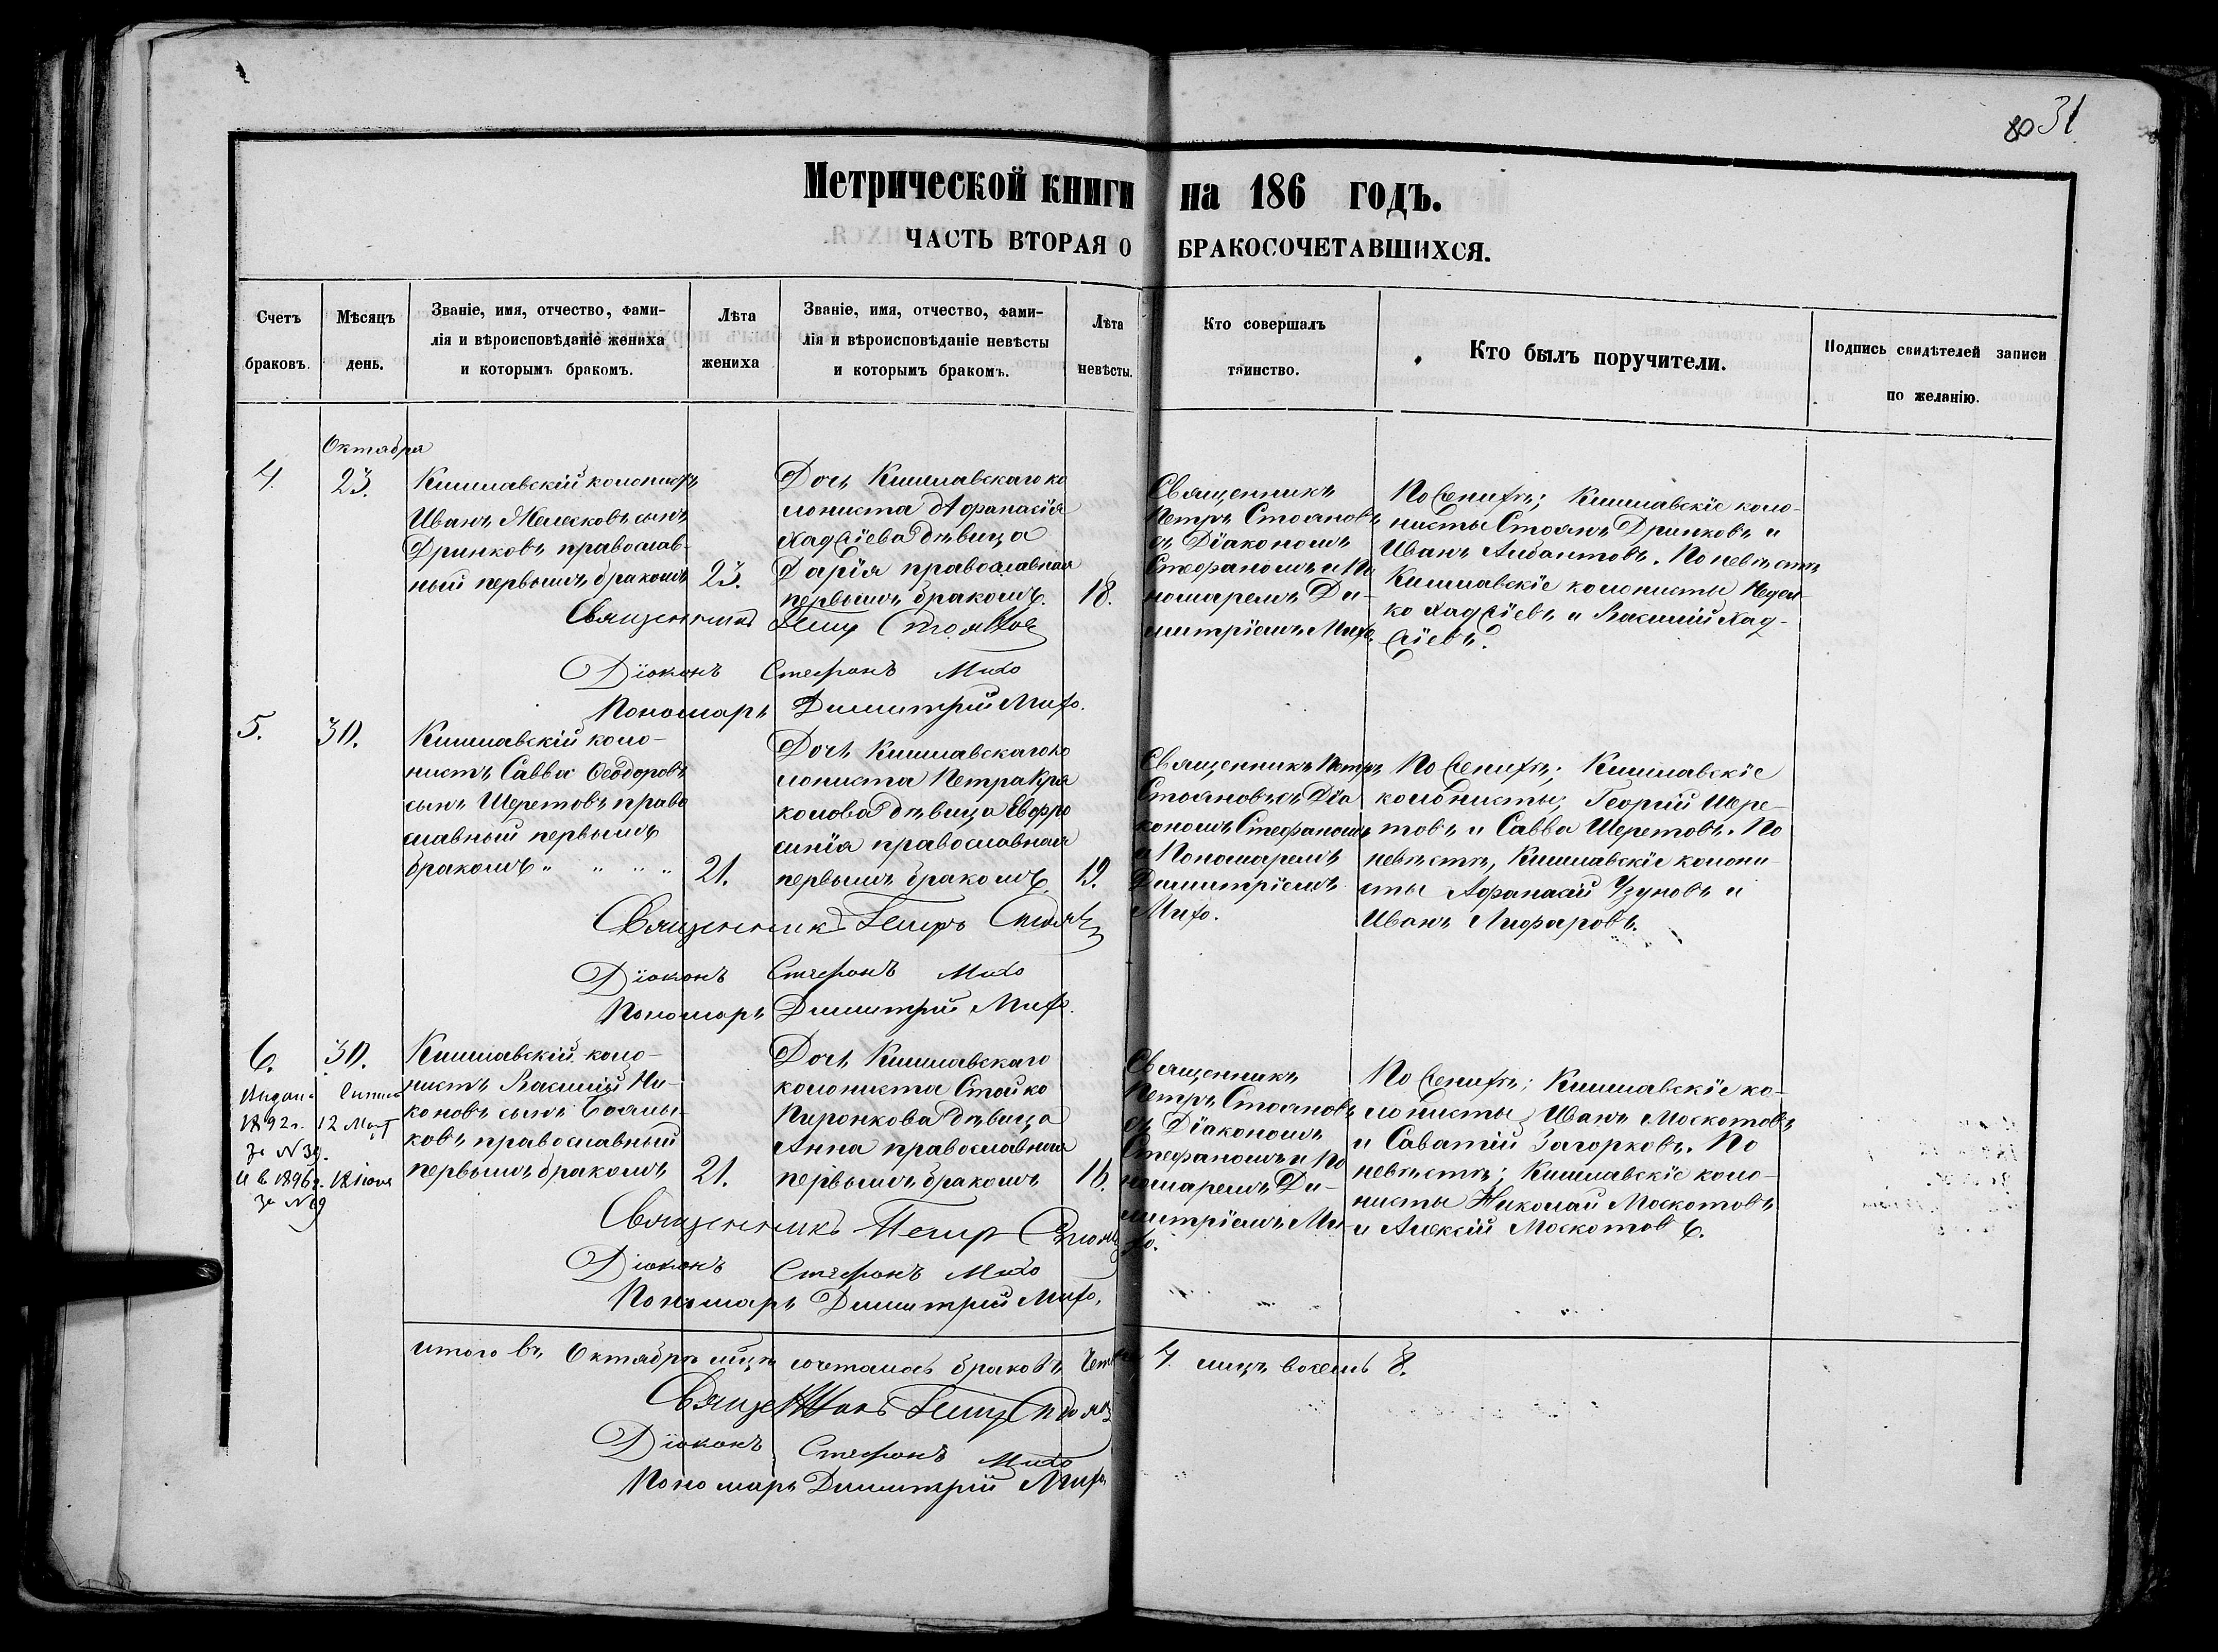 80 31
Метрической книги на 186 годъ.
ЧАСТЬ ВТОРАЯ О БРАКОСОЧЕТАВШИХСЯ.
Счетъ
браковъ.
Мѣсяцъ
день.
Званіе, имя, отчество, фами-
лія и вѣроисповѣданіе жениха
и которымъ бракомъ.
Лѣта
жениха
Званіе, имя, отчество, фами-
лія и вѣроисповѣданіе невѣсты
и которымъ бракомъ.
Лѣта
невѣсты.
Кто совершалъ
таинство.
Кто былъ поручители.
Подпись свидѣтелей записи
по желанію.
Октября
4.
23.
Кишлавскій колонистъ
Иванъ Желесковъ сынъ
Дринковъ православ-
ный первымъ бракомъ
23.
Дочь Кишлавскаго ко
лониста Афанасія
Хаджіева дѣвица
Дарія православная
первымъ бракомъ.
18.
Священникъ
Петръ Стояновъ
съ Діакономъ
Стефаномъ и По
номаремъ Ди-
митріемъ Михо.
По женихѣ; Кишлавскіе коло-
нисты Стоянъ Дринковъ и
Иванъ Албантовъ. По невѣстѣ
Кишлавскіе колонисты Недел-
ко Хаджіевъ и Василій Хад-
жіевъ.
Священникъ Петръ Стоянов
Діаконъ Стефанъ Михо
Пономарь Димитрій Михо.
5.
30.
Кишлавскій коло-
нистъ Савва Ѳеодоровъ
сынъ Шеретовъ право
славный первымъ
бракомъ " " " "
21.
Дочь Кишлавскаго ко
лониста Петра Кра
колова дѣвица Евфро
синія православная
первымъ бракомъ.
19.
Священникъ Петръ
Стояновъ съ Діа
кономъ Стефаномъ
и Пономаремъ
Димитріемъ
Михо.
По женихѣ; Кишлавскіе
колонисты, Георгій Шере-
товъ и Савва Шеретовъ. По
невѣстѣ, Кишлавскіе колони-
сты Афанасій Узуновъ и
Иванъ Лифаровъ.
Священникъ Петръ Стоян
Діаконъ Стефанъ Михо
Пономарь Димитрій Михо.
6.
30.
Выдана выпись
1892г. 12 Март
за №39.
и въ 1896г. 12 іюня
за №69
Кишлавскій коло-
нистъ Василій Ни-
коновъ сынъ Боялы-
ковъ православный
первымъ бракомъ
21.
Дочь Кишлавскаго
колониста Стойко
Пиронкова дѣвица
Анна православная
первымъ бракомъ
16.
Священникъ
Петръ Стояновъ
съ Діакономъ
Стефаномъ и По
номаремъ Ди-
митріемъ Ми-
хо.
По женихѣ; Кишлавскіе ко-
лонисты Иванъ Москотовъ
и Саватій Загорковъ. По
невѣстѣ; Кишлавскіе коло-
нисты Николай Москотовъ
и Алексій Москотовъ.
Священникъ Петр Стоян
Діаконъ Стефанъ Михо
Пономарь Димитрій Михо.
итого въ Октябрѣ мцѣ сочталось браковъ 4 лицъ восемь 8.
Священникъ Петр Стоян
Діаконъ Стефанъ Михо
Пономарь Димитрій Михо